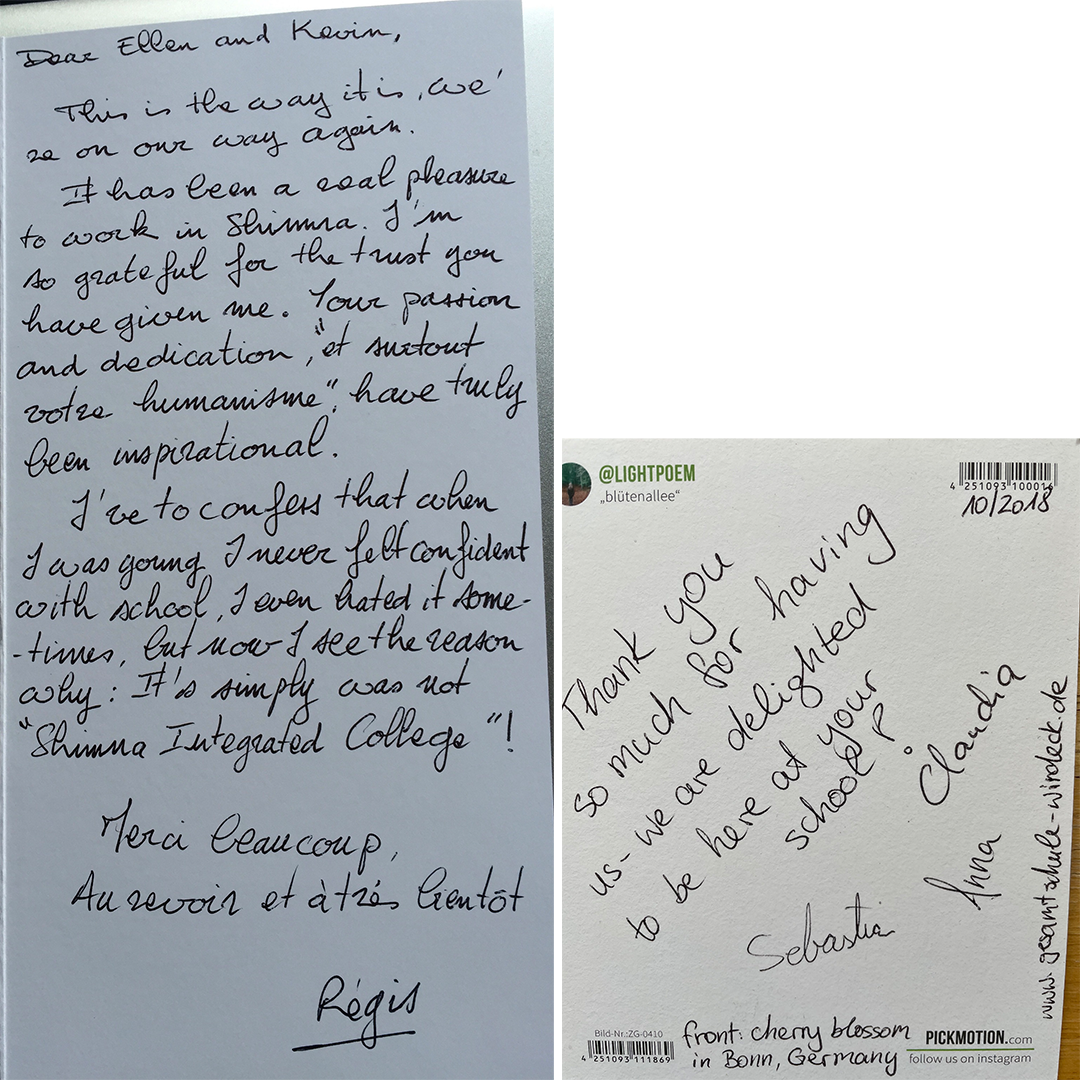 Dear Ellen and Kevin,
This is the way it is, we'
re on our way again.
It has been a real pleasure
to work in Shimna. I'm
so grateful for the trust you
have given me. Your passion
and dedication, "et surtout
votre humanisme", have truly
been inspirational.
I've to confess that when
I was young I never felt confident
with school, I even hated it some-
-times, but now I see the reason
why: It's simply was not
"Shimna Integrated College"!
Merci beaucoup,
Au revoir et à très bientôt
Régis
@LIGHTPOEM
„blütenallee“
4 251093 100014
10/2018
Thank you
so much for having
us - we are delighted
to be here at your
school!
Claudia
Anna
Sebastian
www.gesamtschule-windeck.de
Bild-Nr.:ZG-0410
4 251093 111869
front: cherry blossom
in Bonn, Germany
PICKMOTION.com
follow us on instagram